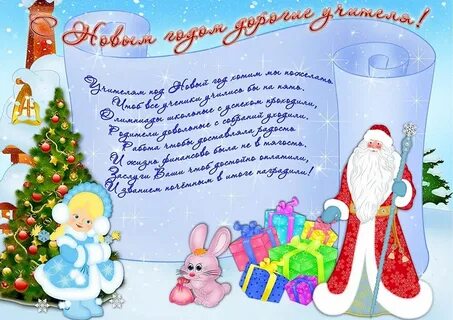 Новым годом дорогие учителя!
Учителям под Новый год хотим мы пожелать
Чтоб все ученики учились бы на пять,
Олимпиады школьные с успехом проходили,
Родители довольные с собраний уходили.
Работа чтобы доставляла радость
И жизнь финансово была не в тягость,
Заслуги Ваши чтоб достойно оплатили,
И званием почётным в итоге наградили!